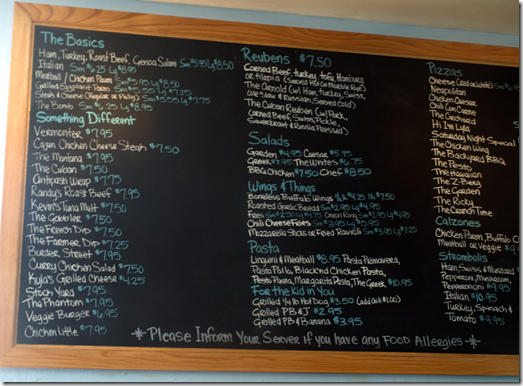 The Basics
Ham, Turkey, Roast Beef, Genoa Salami Sm $5.95 Lg $8.50
Italian Sm $6.25 Lg $8.95
Meatball / Chicken Parm Sm $5.95 Lg $8.50
Grilled Eggplant Parm Sm $5.55 Lg $7.25
Steak & Cheese (Regular or Philly) Sm $5.55 Lg $7.75
The Bomb Sm $6.25 Lg $8.95
Something Different
Vermonter $7.95
Cajun Chicken Cheese Steak $7.50
The Montana $7.95
The Cuban $7.50
Antipasto Wrap $7.75
Randy's Roast Beef $7.95
Kevin's Tuna Melt $7.50
The Gobbler $7.50
The French Dip $7.50
The Farmer Dip $7.25
Burder, Street $7.95
Curry Chicken Salad $7.50
Kyla's Grilled Cheese $4.25
Stock Yard $7.95
The Phantom $7.95
Veggie Burger $6.95
Chicken Little $7.95
Reubens $7.50
Corned Beef, Turkey, Tofu, Hamburg
or Tilapia (Served Hot on Marble Rye)
The Arnold (w/ Ham, Turkey, Swiss,
Cole Slaw & Russian, Served Cold)
The Cuban Reuben (w/ Pork,
Corned Beef, Swiss, Pickle,
Sauerkraut & Russia, Pressed)
Salads
Garden $4.95 Caesar $5.95
Greek $7.95 The Winters $6.75
BBQ Chicken $7.50 Chef $8.50
Wings & Things
Boneless Buffalo Wings ½ lb $4.25 1 lb $7.50
Roasted Garlic Bread Sm $2.95 Lg $4.95
Fries Sm $2.50 Lg $4.75 Onion Ring Sm $2.95 Lg $4.95
Chili Cheese Fries Sm $3.95 Lg $5.95
Mozzarella Sticks or Fried Ravioli Sm $3.95 Lg $7.25
Pasta
Linguini & Meatball $8.95 Pasta Primavera,
Pesto Pollo, Blackn'd Chicken Pasta,
Pesto Pasta, Margarita Pasta, The Greek $10.95
For the Kid in You
Grilled ¼ lb Hot Dog $3.50
Grilled PB & J $2.95
Grilled PB & Banana $3.95
Pizzas
Cheese (red or white) Sm
Neapolitan
Chicken Caesar
Chili Con Carne
The Orchard
Hi I'm Lyla
Saturday Night Special
The Chicken Wing
The Backyard BBQ
The Pesto
The Hawaiian
The Z-Berg
The Garden
The Ricky
The Crunch Time
Calzones
Chicken Parm, Buffalo C
Meatball or Veggie $9.
Strombolis
Ham, Swiss, & Mustard
Pepperoni, Mushroom,
Pepperoncini $9.95
Italian $10.95
Turkey, Spinach &
Tomato $9.95
*Please Inform Your Server if you have any Food Allergies*